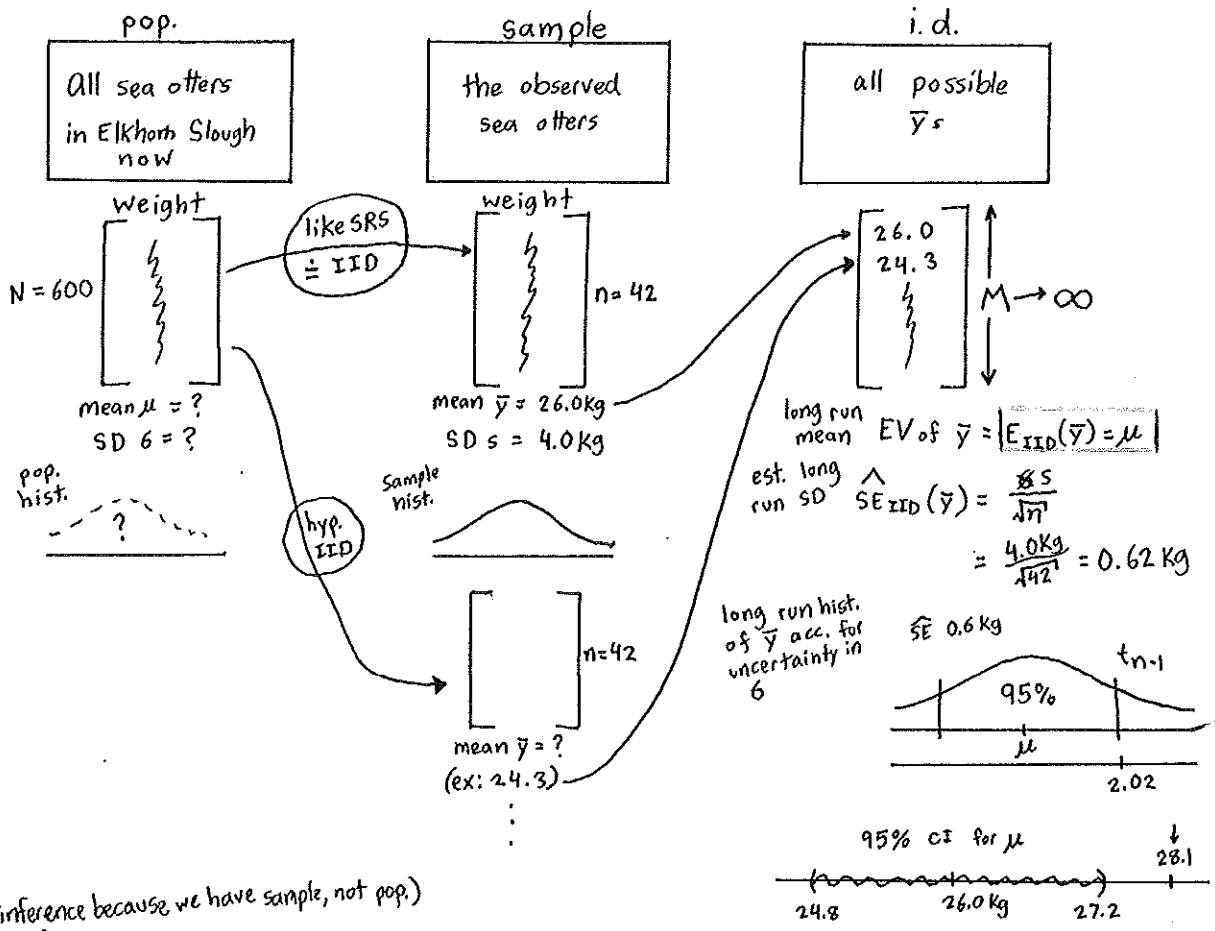 pop.
All sea otters
in Elkhorn Slough
now
weight
N = 600
mean μ = ?
SD 6 = ?
pop.
hist.
?
like SRS
≐ IID
hyp.
IID
sample
the observed
sea otters
weight
n = 42
mean ȳ = 26.0kg
SD s = 4.0kg
Sample
hist.
n=42
mean ȳ = ?
(ex: 24.3)
⋮
i.d.
all possible
ȳ s
26.0
24.3
M → ∞
long run
mean EV of ȳ = E_IID(ȳ) = μ
est. long
run SD ŜE_IID(ȳ) = s/√n
= 4.0Kg/√42 = 0.62 Kg
long run hist.
of ȳ acc. for
uncertainty in
6
ŜE 0.6kg
t_n-1
95%
μ
2.02
95% CI for μ
↓
28.1
24.8 26.0kg 27.2
inference because we have sample, not pop.)